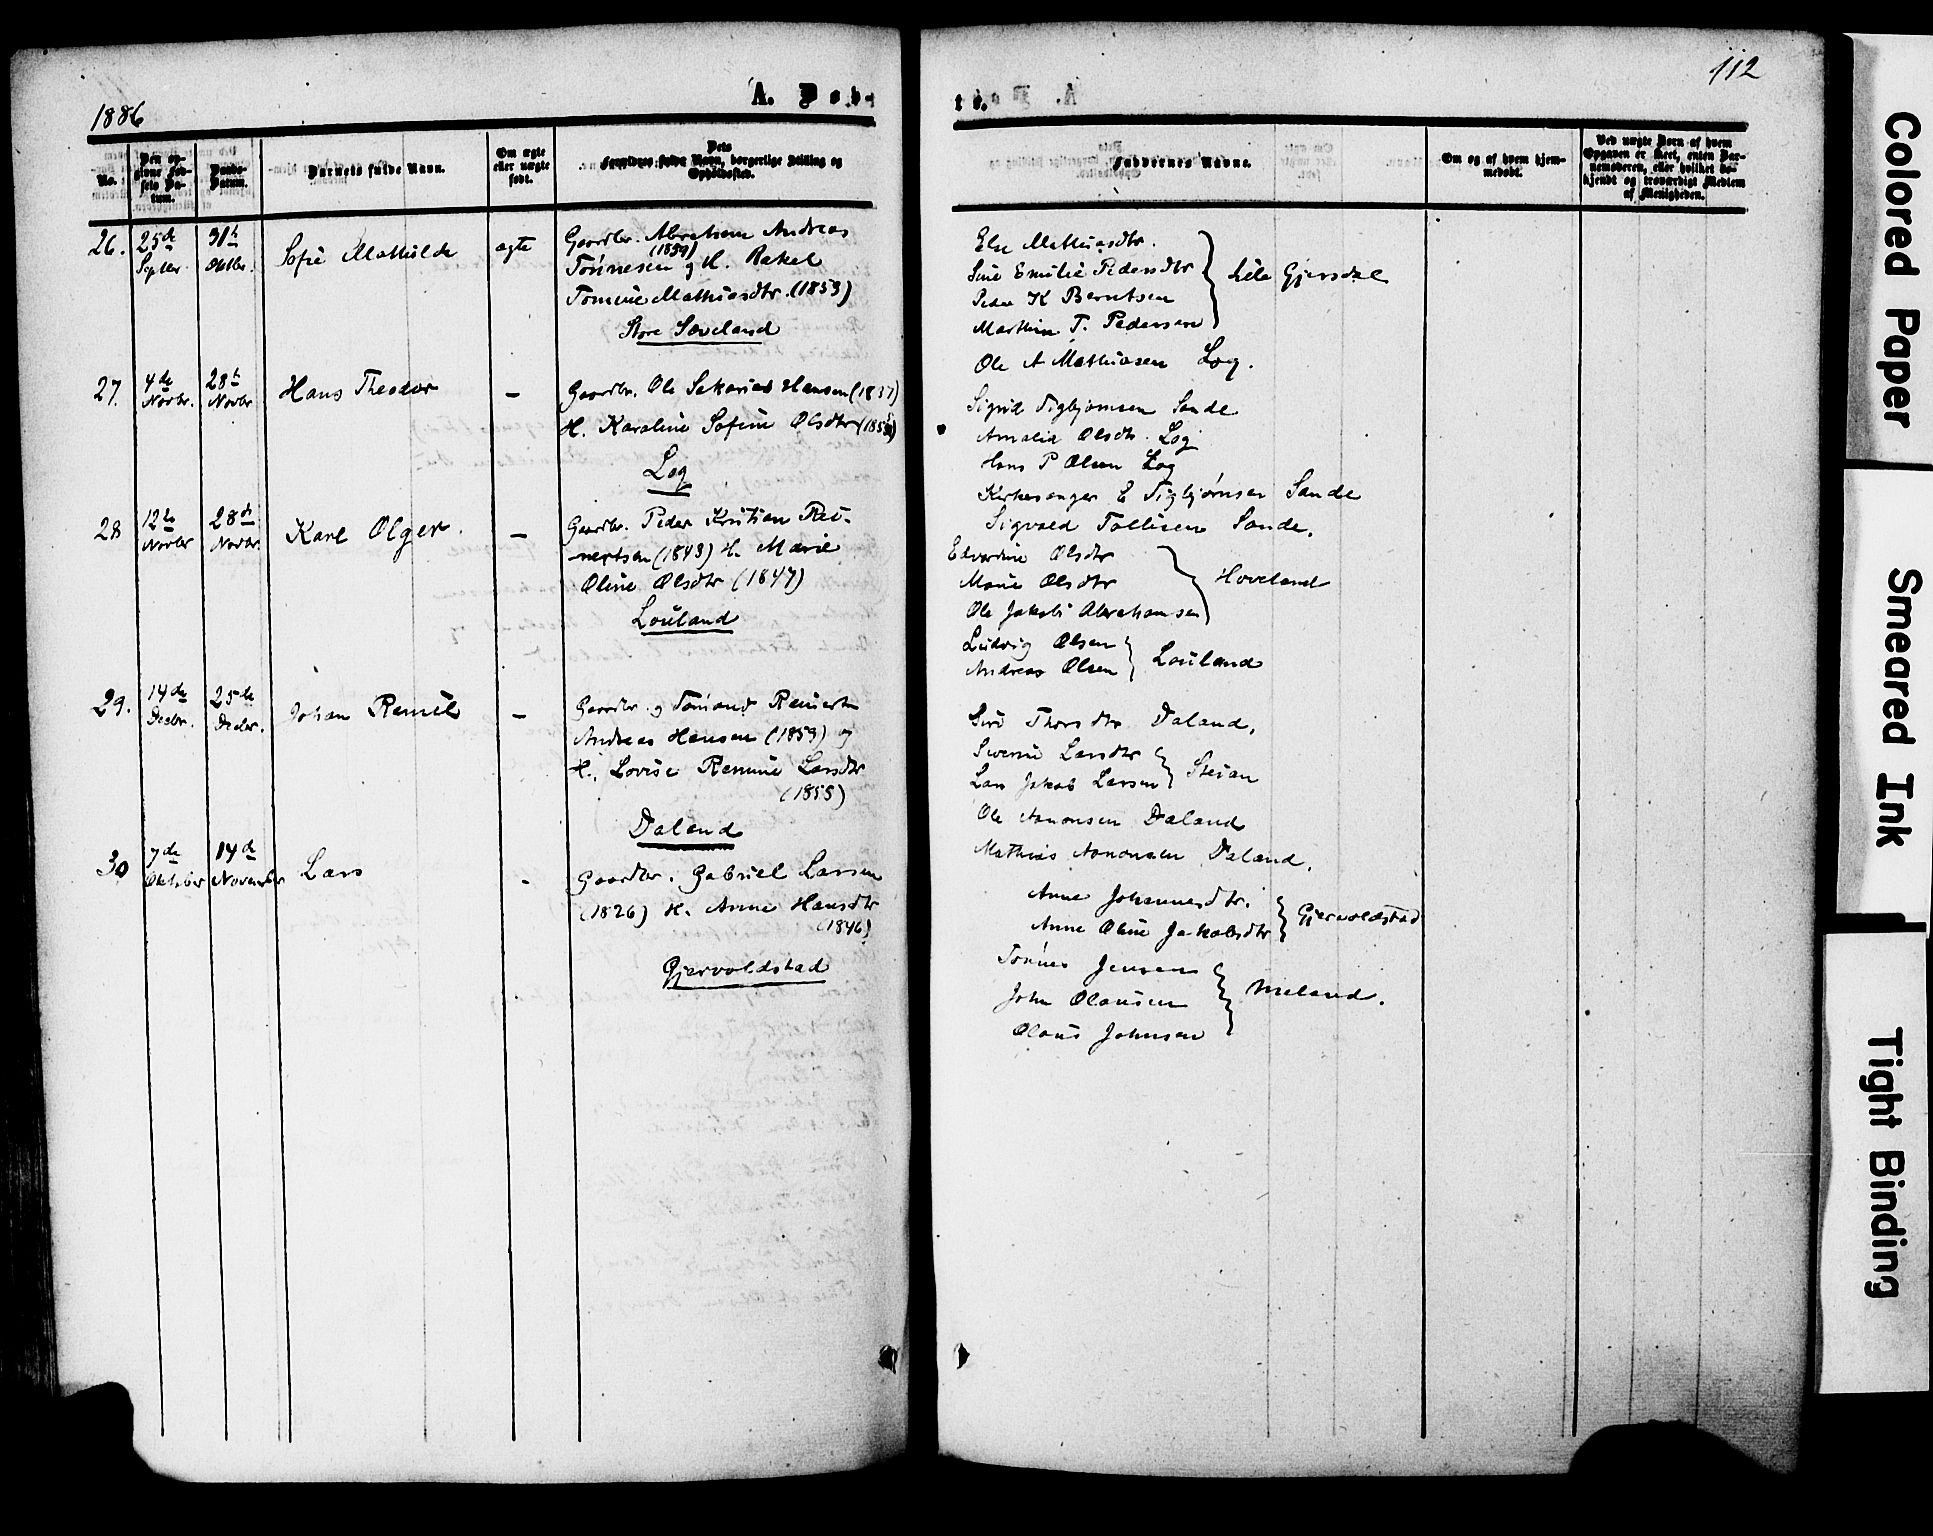 1886
A. Døb-
No.
Den op-
givne Fød-
sels Da-
tum.
Daabs-
Datum.
Barnets fulde Navn.
Om ægte
eller uægte
født.
Dets
Forældres fulde Navn, borgerlige Stilling og
Opholdssted.
26.
25de
Septbr.
31te
Oktbr.
Sofie Mathilde
ægte
Gaardbr. Abraham Andreas
(1859)
Tønnesen og H. Rakel
Tomine Mathiasdtr. (1853)
Store Sæveland
27.
4de
Novbr.
28de
Novbr
Hans Theodor
—
Gaardbr. Ole Sakarias Hansen (1837)
H. Karoline Sofie Olsdtr
Log
28
12te
Novbr
28de
Novbr.
Karl Olger.
—
Gaardbr. Peder Kristian Rei-
nertsen (1843) H. Marie
Oline Olsdtr (1847)
Louland
29.
14de
Decbr.
25de
Decbr.
Johan Remel
—
Gaardbr. og Tømand Reinert
Andreas Hansen (1859) og
H. Lovise Remine Larsdtr
(1855)
Daland
30
7de
Oktober
14de
November
Lars
-
Gaardbr. Gabriel Larsen
(1826) H. Anne Hansdtr
(1846)
Gjervoldstad
112
te.
Faddernes Navne.
Om og af hvem hjem-
medøbt.
Ved uægte Børn af hvem
Opgaven er skeet, enten Bar-
nemoderen, eller hvilket be-
kjendt og troværdigt Medlem
af Menigheden.
Else Mathiasdtr.
Sine Emilie Pedersdtr
Peder K Berntsen
Marthin T. Pedersen
Lille Gjersdal
Ole A Mathiasen Log.
Sigrid Sigbjørnsen Sande
Amalia Olsdtr. Log
Hans P Olsen Log
Kirkesanger E Sigbjørnsen Sande
Sigvald Tollisen Sande.
Edvardine Olsdtr
Marie Olsdtr
Ole Jakob Abrahamsen
Hoveland
Ludvig Olsen
Andreas Olsen
Louland
Siri Thorsdtr Daland.
Siverine Larsdtr
Lars Jakob Larsen
Steian
Ole Aanonsen Daland
Mathias Aanonsen Daland.
Anne Johannesdtr.
Anne Oline Jakobsdtr
Gjervoldstad
Tønnes Jensen
John Olausen
Olaus Johnsen
Meland.
Colored Paper
Smeared Ink
Tight Binding